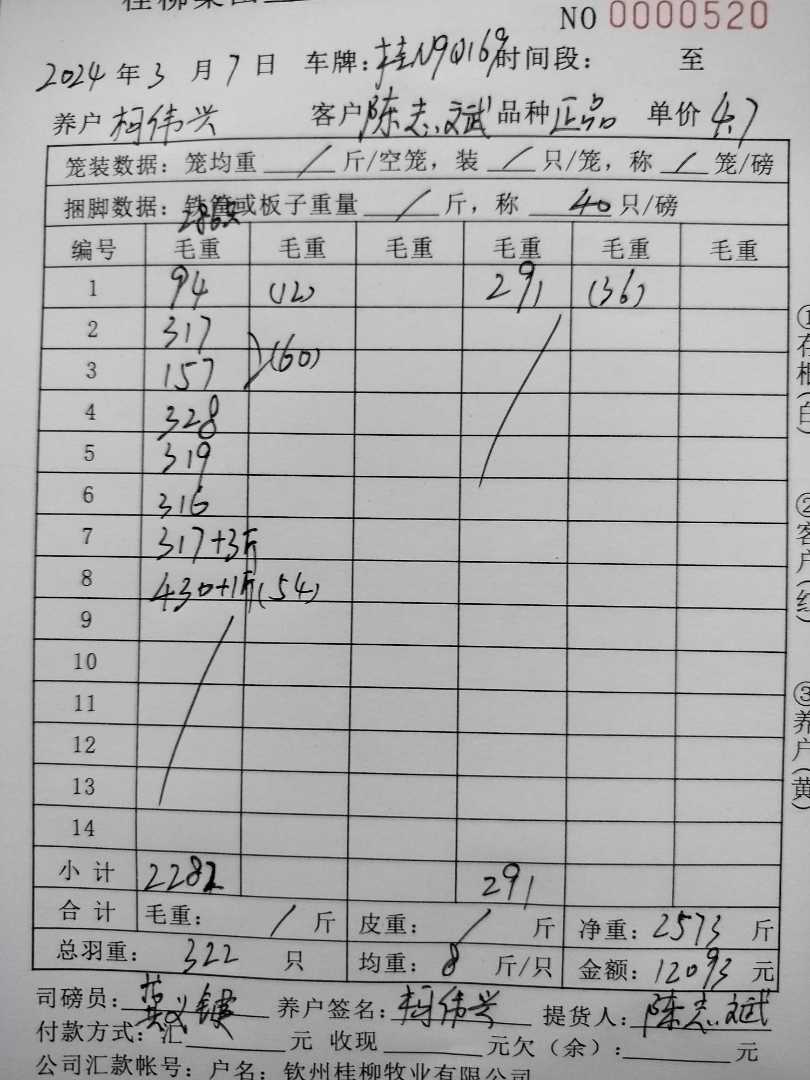 NO 0000520
2024 年 3 月 7 日 车牌: 桂N9Q169 时间段: 至
养户 柯伟兴 客户 陈志斌 品种 正品 单价 4.7
笼装数据: 笼均重 / 斤/空笼, 装 / 只/笼, 称 / 笼/磅
捆脚数据: 铁笼或板子重量 / 斤, 称 40 只/磅
编号 毛重 毛重 毛重 毛重 毛重 毛重
1 94 (12) 291 (36)
2 317
3 157 (60)
4 328
5 319
6 316
7 317+3斤
8 430+1斤 (54)
9
10
11
12
13
14
小计 2282 291
合计 毛重: / 斤 皮重: / 斤 净重: 2573 斤
总羽重: 322 只 均重: 8 斤/只 金额: 12093 元
司磅员: 养户签名: 柯伟兴 提货人: 陈志斌
付款方式: 汇 元 收现 元欠(余): 元
公司汇款帐号: 户名: 钦州桂柳牧业有限公司
①存根(白)
②客户(红)
③养户(黄)